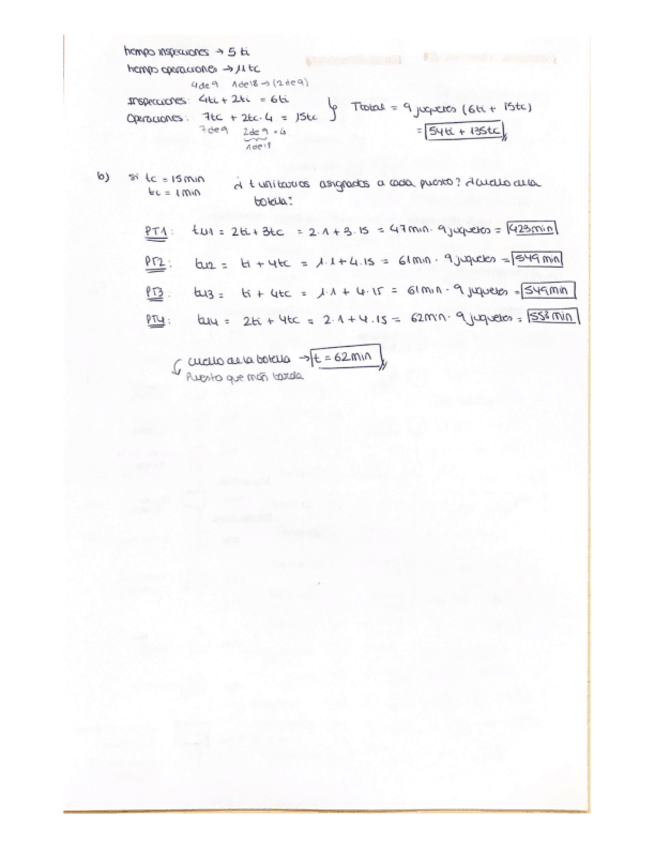 tiempo inspecciones → 5 ti
tiempo operaciones → 11 tc
4 de 9 1 de 18 → (2 de 9)
Inspecciones: 4ti + 2ti = 6ti
Operaciones: 7tc + 2tc·4 = 15tc
7 de 9 2 de 9 · 4
1 de 18
Ttotal = 9 juguetes (6ti + 15tc)
= 54ti + 135tc
b) si tc = 15 min
ti = 1 min
¿t unitarios asignados a cada puesto? ¿cuello de la
botella?
PT1: tu1 = 2ti + 3tc = 2·1 + 3·15 = 47min · 9 juguetes = 423min
PT2: tu2 = ti + 4tc = 1·1 + 4·15 = 61min · 9 juguetes = 549 min
PT3: tu3 = ti + 4tc = 1·1 + 4·15 = 61min · 9 juguetes = 549min
PT4: tu4 = 2ti + 4tc = 2·1 + 4·15 = 62min · 9 juguetes = 558min
cuello de la botella → t = 62min
Puesto que más tarda